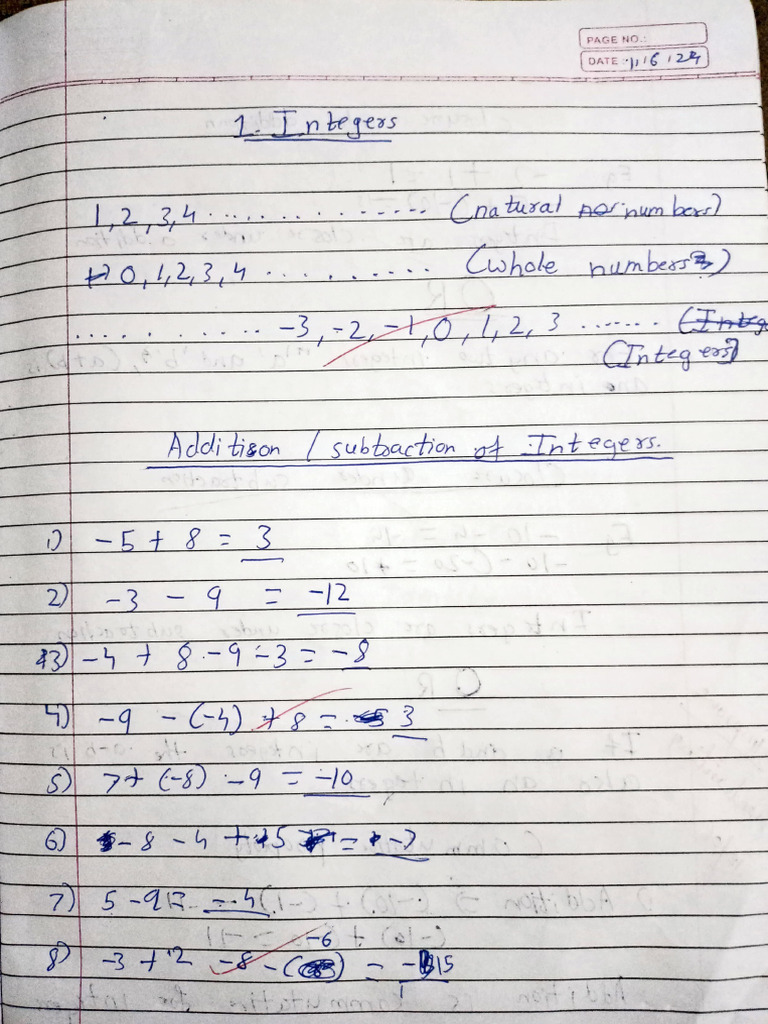 PAGE NO.:
DATE: 11/6/24
1. Integers
1, 2, 3, 4 .............. (natural numbers)
0, 1, 2, 3, 4 .......... (whole numbers)
........... -3, -2, -1, 0, 1, 2, 3 ......
(Integers)
Addition / subtraction of Integers.
1) -5 + 8 = 3
2) -3 - 9 = -12
3) -4 + 8 - 9 - 3 = -8
4) -9 - (-4) + 8 = 3
5) 7 + (-8) - 9 = -10
6) -8 - 4 + 5 = -7
7) 5 - 9 = -4
-6
8) -3 + 2 - 8 - ( ) = -15